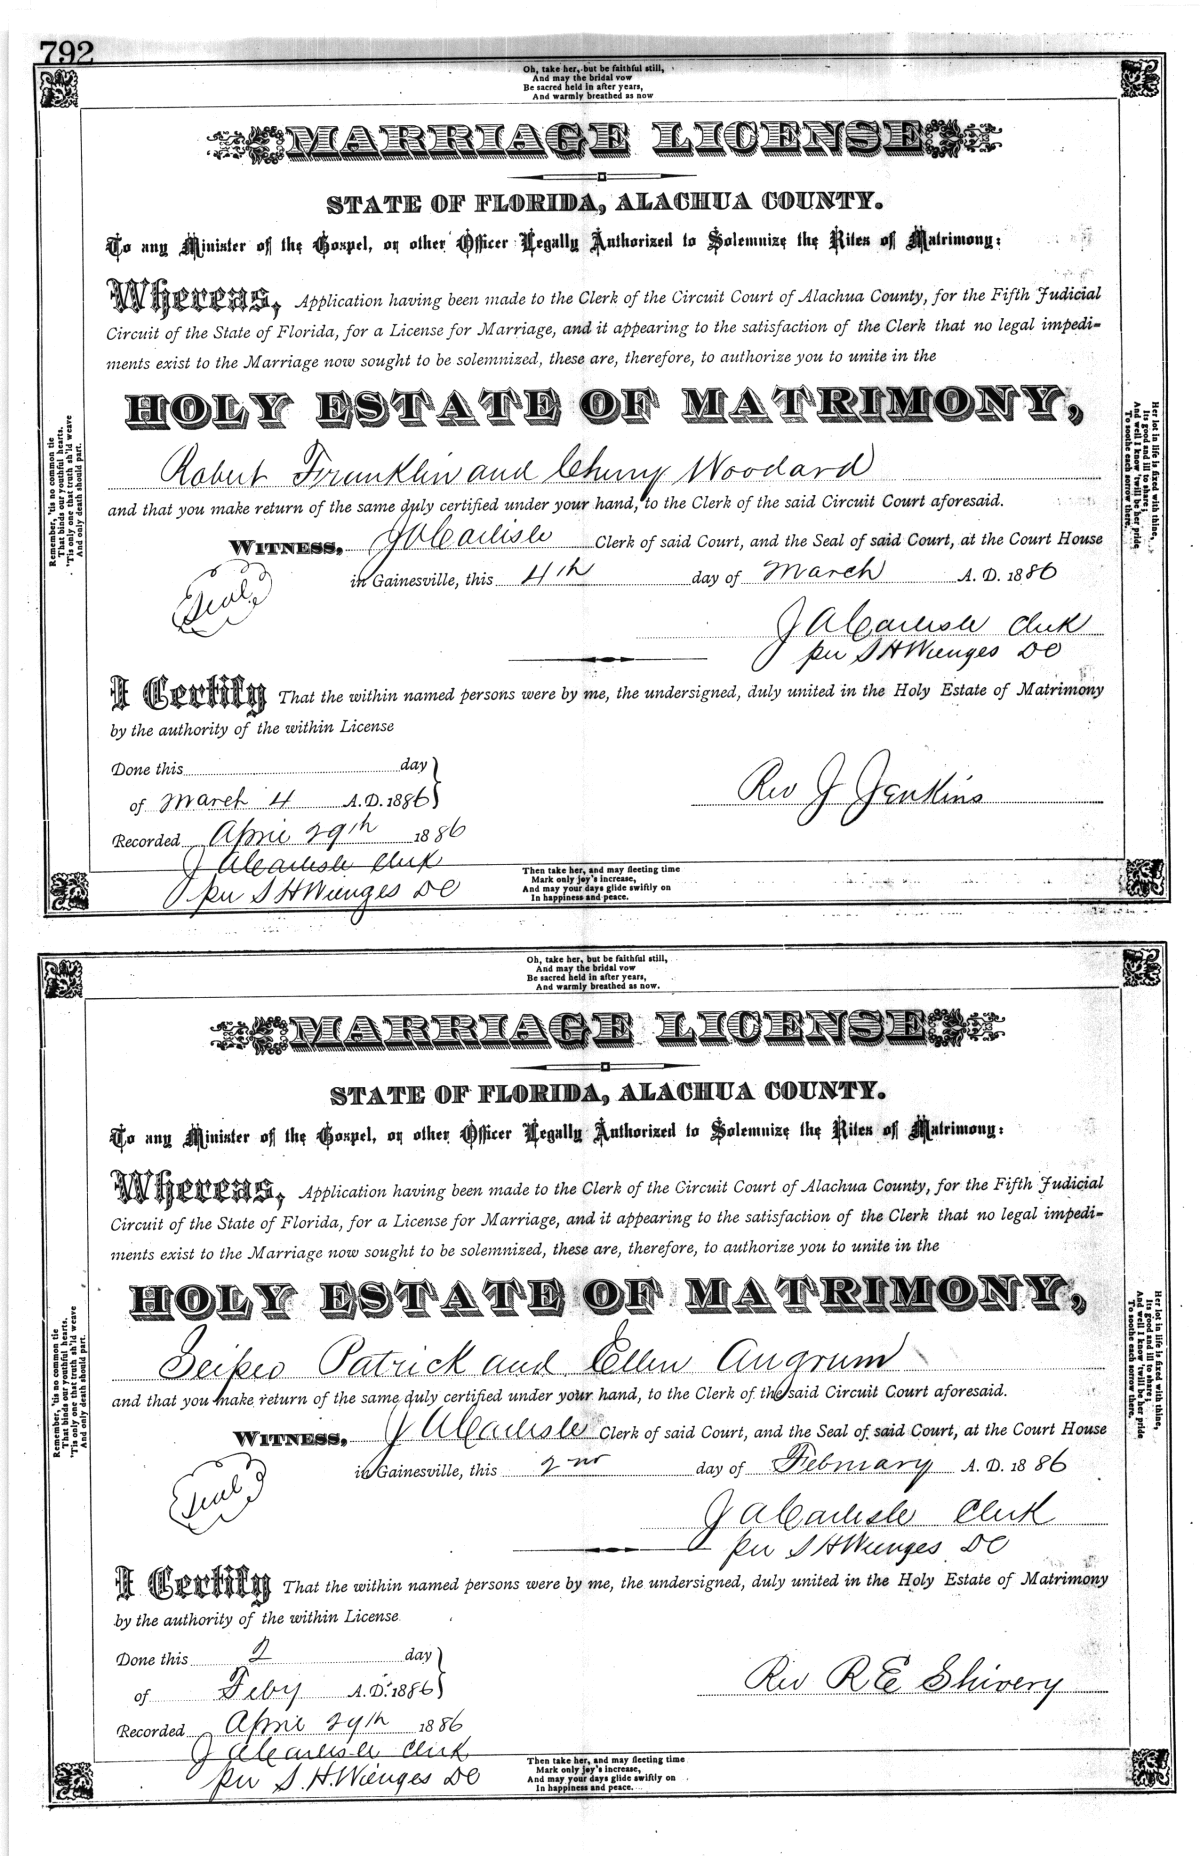 792
Oh, take her, but be faithful still,
And may the bridal vow
Be sacred held in after years,
And warmly breathed as now
MARRIAGE LICENSE
STATE OF FLORIDA, ALACHUA COUNTY.
To any Minister of the Gospel, or other Officer Legally Authorized to Solemnize the Rites of Matrimony:
Whereas, Application having been made to the Clerk of the Circuit Court of Alachua County, for the Fifth Judicial
Circuit of the State of Florida, for a License for Marriage, and it appearing to the satisfaction of the Clerk that no legal impedi-
ments exist to the Marriage now sought to be solemnized, these are, therefore, to authorize you to unite in the
HOLY ESTATE OF MATRIMONY,
Robert Franklin and Cherry Woodard
and that you make return of the same duly certified under your hand, to the Clerk of the said Circuit Court aforesaid.
WITNESS, J A Carlisle Clerk of said Court, and the Seal of said Court, at the Court House
in Gainesville, this 4th day of March A. D. 1886
Seal
J A Carlisle Clerk
per S H Wienges DC
I Certify That the within named persons were by me, the undersigned, duly united in the Holy Estate of Matrimony
by the authority of the within License
Done this day
of March 4 A.D. 1886
Rev J Jenkins
Recorded April 29th 1886
J A Carlisle Clerk
per S H Wienges DC
Remember, 'tis no common tie
That binds our youthful hearts.
'Tis only one that truth sh'ld weave
And only death should part.
Her lot in life is fixed with thine,
Its good and ill to share;
And well I know 'twill be her pride
To soothe each sorrow there.
Then take her, and may fleeting time
Mark only joy's increase,
And may your days glide swiftly on
In happiness and peace.
Oh, take her, but be faithful still,
And may the bridal vow
Be sacred held in after years,
And warmly breathed as now.
MARRIAGE LICENSE
STATE OF FLORIDA, ALACHUA COUNTY.
To any Minister of the Gospel, or other Officer Legally Authorized to Solemnize the Rites of Matrimony:
Whereas, Application having been made to the Clerk of the Circuit Court of Alachua County, for the Fifth Judicial
Circuit of the State of Florida, for a License for Marriage, and it appearing to the satisfaction of the Clerk that no legal impedi-
ments exist to the Marriage now sought to be solemnized, these are, therefore, to authorize you to unite in the
HOLY ESTATE OF MATRIMONY,
Patrick and Ellen Angrum
and that you make return of the same duly certified under your hand, to the Clerk of the said Circuit Court aforesaid.
WITNESS, J A Carlisle Clerk of said Court, and the Seal of said Court, at the Court House
in Gainesville, this 2nd day of February A. D. 1886
Seal
J A Carlisle Clerk
per S H Wienges DC
I Certify That the within named persons were by me, the undersigned, duly united in the Holy Estate of Matrimony
by the authority of the within License
Done this 2 day
of Feby A.D. 1886
Rev R E Shivery
Recorded April 29th 1886
J A Carlisle Clerk
per S. H. Wienges DC
Remember, 'tis no common tie
That binds our youthful hearts.
'Tis only one that truth sh'ld weave
And only death should part.
Her lot in life is fixed with thine,
Its good and ill to share;
And well I know 'twill be her pride
To soothe each sorrow there.
Then take her, and may fleeting time
Mark only joy's increase,
And may your days glide swiftly on
In happiness and peace.